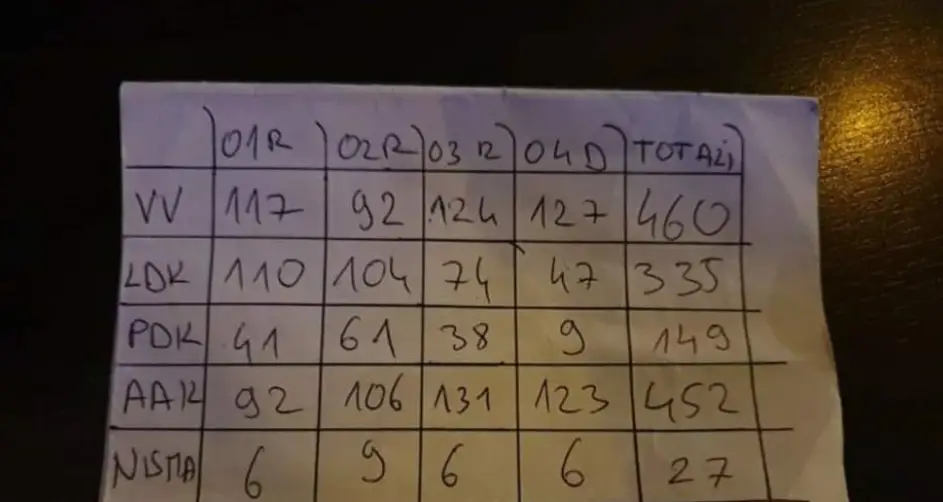 01R 02R 03R 04D TOTALI
VV 117 92 124 127 460
LDK 110 104 74 47 335
PDK 41 61 38 9 149
AAK 92 106 131 123 452
NISMA 6 9 6 6 27